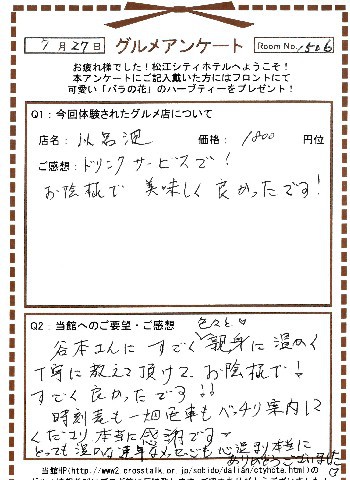 7月27日 グルメアンケート Room No. 1506
お疲れ様でした！松江シティホテルへようこそ！
本アンケートにご記入戴いた方にはフロントにて
可愛い「バラの花」のハーブティーをプレゼント！
Q1：今回体験されたグルメ店について
店名： 川呂池 価格： 1800 円位
ご感想：ドリンクサービスで！
お陰様で 美味しく 良かったです！
Q2：当館へのご要望・ご感想 色々と
谷本さんに すごく 親身に 温かく
丁寧に教えて頂けて お陰様で！
すごく 良かったです!!
時刻表も一畑電車も バッチリ案内して
くださり 本当に感謝です
とっても 温かな 心遣い 本当に
ありがとうございました
当館HP(http://www2.crosstalk.or.jp/sobido/daiian/ctyhote.html)の